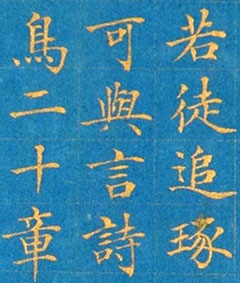 若徒追琢
可與言詩
鳥二十章